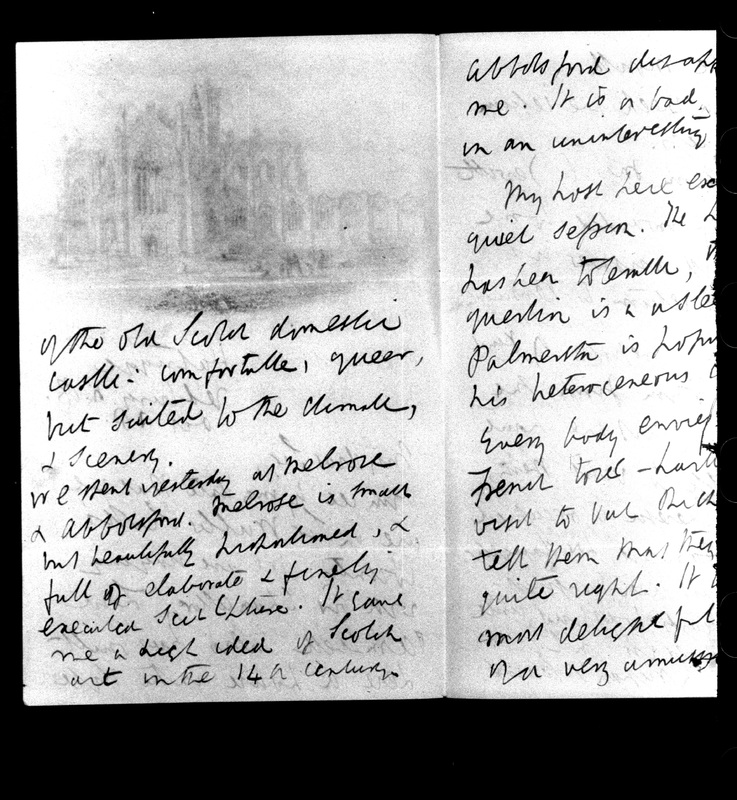 of the old Scotch domestic
castle: comfortable, queer,
but suited to the climate,
& scenery.
We spent yesterday at Melrose
& Abbotsford. Melrose is small
but beautifully proportioned, &
full of elaborate & finely
executed sculpture. It gave
me a high idea of Scotch
art in the 14th century.
Abbotsford disapp
me. It is a bad,
in an uninteresting
My host here
quiet session. He
has been tolerable,
question is a
Palmerston is
his heterogeneous
Every body
French tour
visit to Val Rich
tell them that they
quite right. It
most delightful
of a very